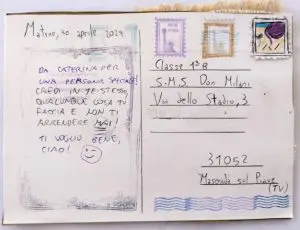 Matino, 30 aprile 2024
DA CATERINA PER
UNA PERSONA SPECIALE!
CREDI IN TE STESSO,
QUALUNQUE COSA TU
FACCIA E NON TI
ARRENDERE MAI!
TI VOGLIO BENE,
CIAO!
Classe 1ªB
S.M.S. Don Milani
Via dello Stadio, 3
31052
Maserada sul Piave
(TV)